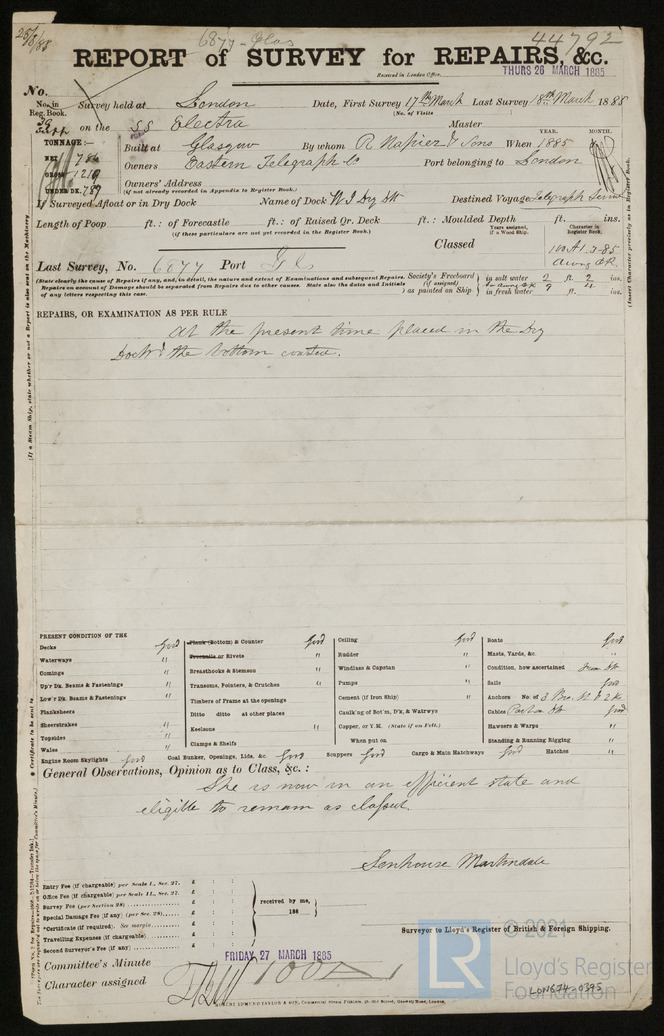 25/3/85
6877 - Glas
44792
REPORT of SURVEY for REPAIRS, &c.
Received in London Office.
THURS 26 MARCH 1885
No.
No. in Reg. Book. Survey held at London Date, First Survey 17th March Last Survey 18th March 1885
(No. of Visits
on the SS Electra Master
TONNAGE:- Built at Glasgow By whom R Napier & Sons When 1885 YEAR. MONTH.
NET 786
GROSS 1219 Owners Eastern Telegraph Co Port belonging to London
UNDER DK. 789 Owners' Address
(if not already recorded in Appendix to Register Book.)
If Surveyed Afloat or in Dry Dock Name of Dock W I Dry Dk Destined Voyage Telegraph
Length of Poop ft.: of Forecastle ft.: of Raised Qr. Deck ft.: Moulded Depth ft. ins.
(if these particulars are not yet recorded in the Register Book.)
Years assigned, if a Wood Ship. Character in Register Book.
Classed 100A1.3-85
Last Survey, No. 6877 Port Gls
(State clearly the cause of Repairs if any, and, in detail, the nature and extent of Examinations and subsequent Repairs.
Repairs on account of Damage should be separated from Repairs due to other causes. State also the dates and Initials
of any letters respecting this case.
Society's Freeboard (if assigned) as painted on Ship in salt water 2 ft. 2 ins.
in fresh water ft. ins.
REPAIRS, OR EXAMINATION AS PER RULE
At the present time placed in the Dry
Dock & the bottom coated.
PRESENT CONDITION OF THE
Decks Good
Waterways "
Comings "
Up'r Dk. Beams & Fastenings "
Low'r Dk. Beams & Fastenings "
Planksheers
Sheerstrakes "
Topsides "
Wales "
Engine Room Skylights Good
Plank (Bottom) & Counter Good
Treenails or Rivets "
Breasthooks & Stemson "
Transoms, Pointers, & Crutches "
Timbers of Frame at the openings
Ditto ditto at other places
Keelsons "
Clamps & Shelfs
Coal Bunker, Openings, Lids, &c. Good
Ceiling Good
Rudder "
Windlass & Capstan "
Pumps "
Cement (if Iron Ship) "
Caulk'ng of Bot'm, D'k, & Watrwys
Copper, or Y.M. (State if on Felt.)
When put on
Scuppers Good
Cargo & Main Hatchways Good
Boats Good
Masts, Yards, &c. "
Condition, how ascertained From Dk
Sails Good
Anchors No. of 3 Bro. St & 2 K.
Cables Good
Hawsers & Warps "
Standing & Running Rigging "
Hatches "
General Observations, Opinion as to Class, &c.:
She is now in an efficient state and
eligible to remain as classed.
Senhouse Martindale
Entry Fee (if chargeable) per Scale I., Sec. 27. £ : :
Office Fee (if chargeable) per Scale II., Sec. 27. £ : :
Survey Fee (per Section 28) £ : :
Special Damage Fee (if any) (per Sec. 28) £ : :
*Certificate (if required). See margin £ : :
Travelling Expenses (if chargeable) £ : :
Second Surveyor's Fee (if any) £ : :
received by me,
188
Surveyor to Lloyd's Register of British & Foreign Shipping.
Committee's Minute FRIDAY 27 MARCH 1885
Character assigned 100A1
LR © 2021
Lloyd's Register
Foundation
LON674-0395